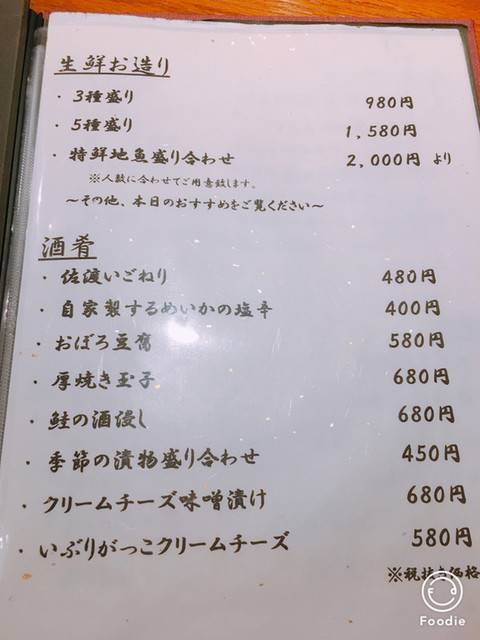 生鮮お造り
・3種盛り 980円
・5種盛り 1,580円
・特鮮地魚盛り合わせ 2,000円 より
※人数に合わせてご用意致します。
〜その他、本日のおすすめをご覧ください〜
酒肴
・佐渡いごねり 480円
・自家製するめいかの塩辛 400円
・おぼろ豆腐 580円
・厚焼き玉子 680円
・鮭の酒浸し 680円
・季節の漬物盛り合わせ 450円
・クリームチーズ味噌漬け 680円
・いぶりがっこクリームチーズ 580円
※税抜き価格
Foodie